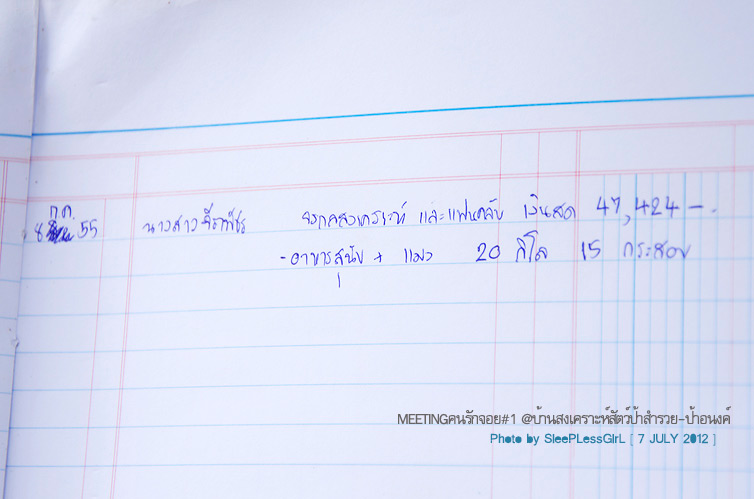 8 ก.ค. 55 นางสาวจีราพัชร จงกลสงเคราะห์ และแฟนคลับ เงินสด 47,424 -.
- อาหารสุนัข + แมว 20 กิโล 15 กระสอบ
MEETINGคนรักจอย#1 @บ้านสงเคราะห์สัตว์ป้าสำรวย-ป้าอนงค์
Photo by SleePLessGirL [ 7 JULY 2012 ]